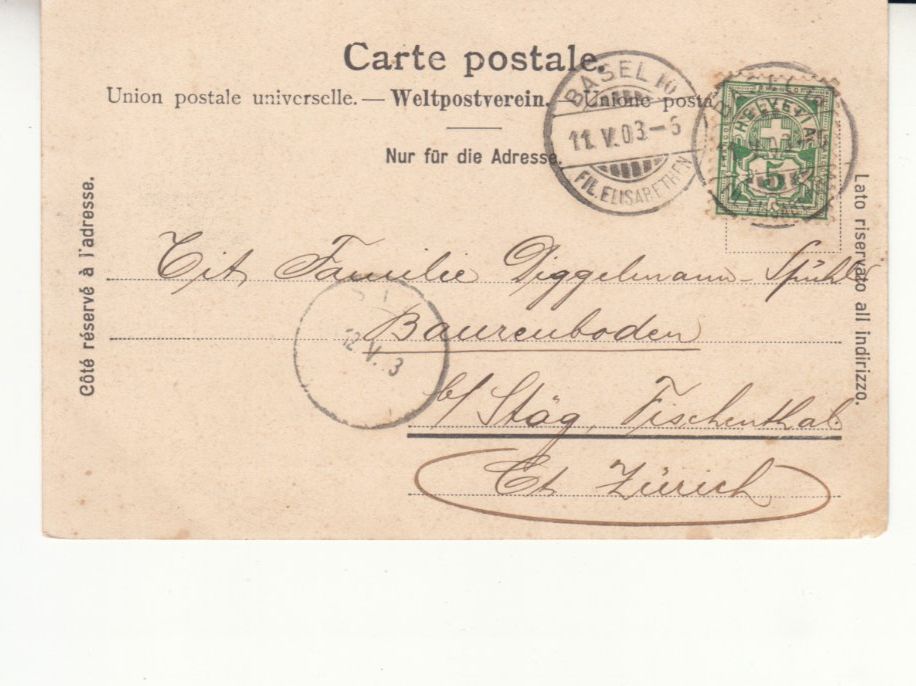 Carte postale.
Union postale universelle. — Weltpostverein. — Unione posta
Nur für die Adresse.
BASEL 10
11.V.03-6
FIL. ELISABETHEN
HELVETIA
5
Côté réservé à l'adresse.
Lato riservato all indirizzo.
Tit Familie Diggelmann-Spühler
Baurenboden
b/ Stäg, Fischenthal.
Ct Zürich
12.V.3